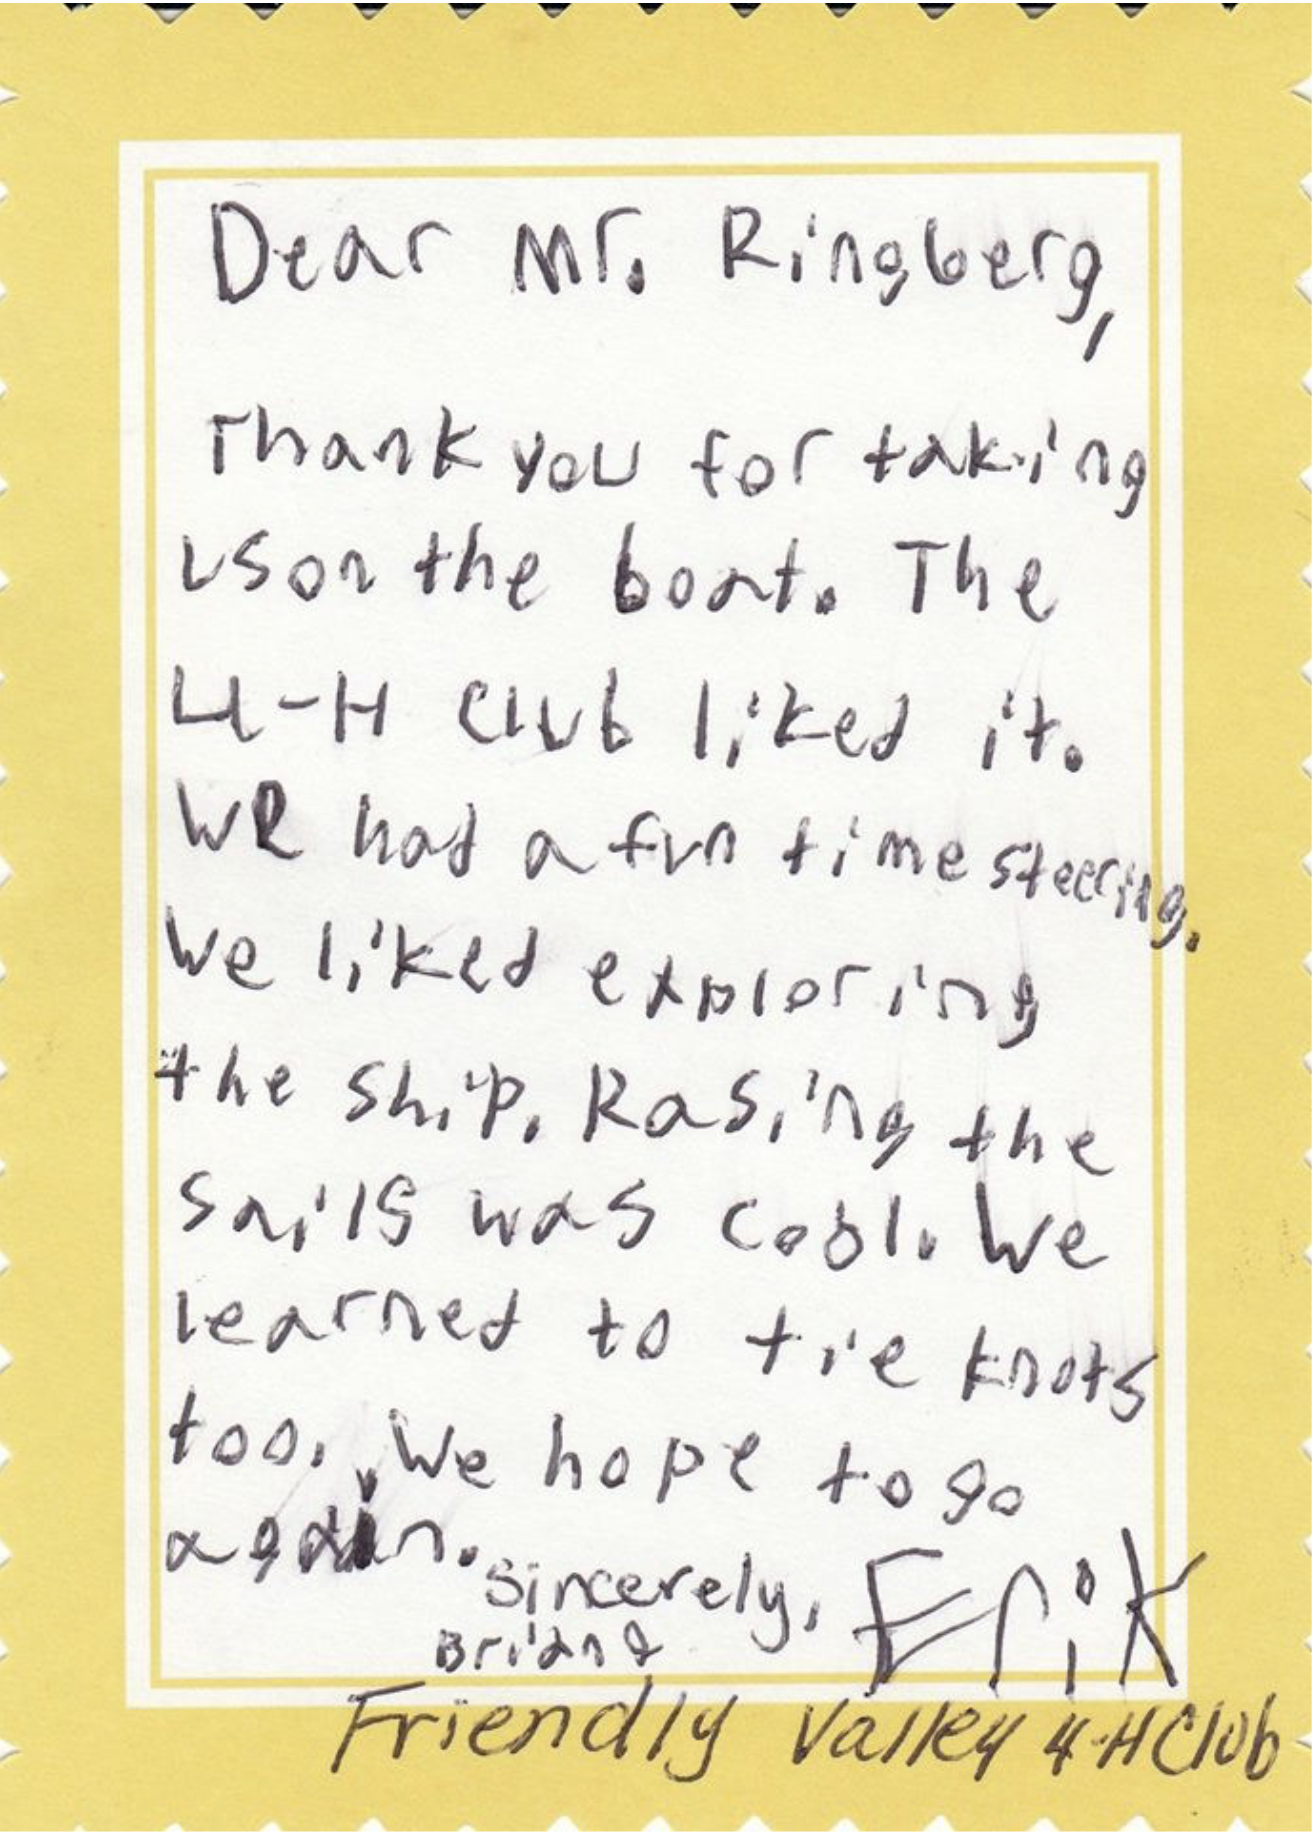 Dear Mr. Ringberg,
Thank you for taking
us on the boat. The
4-H Club liked it.
We had a fun time steering.
We liked exploring
the ship. Rasing the
sails was cool. We
learned to tie knots
too. We hope to go
again. Sincerely,
Brian & Erik
Friendly Valley 4-H Club